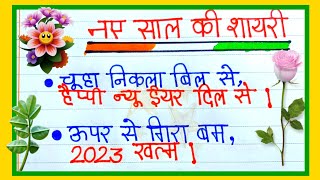 नए साल की शायरी
• चूहा निकला बिल से,
हैप्पी न्यू ईयर दिल से !
• ऊपर से गिरा बम,
2023 खत्म !